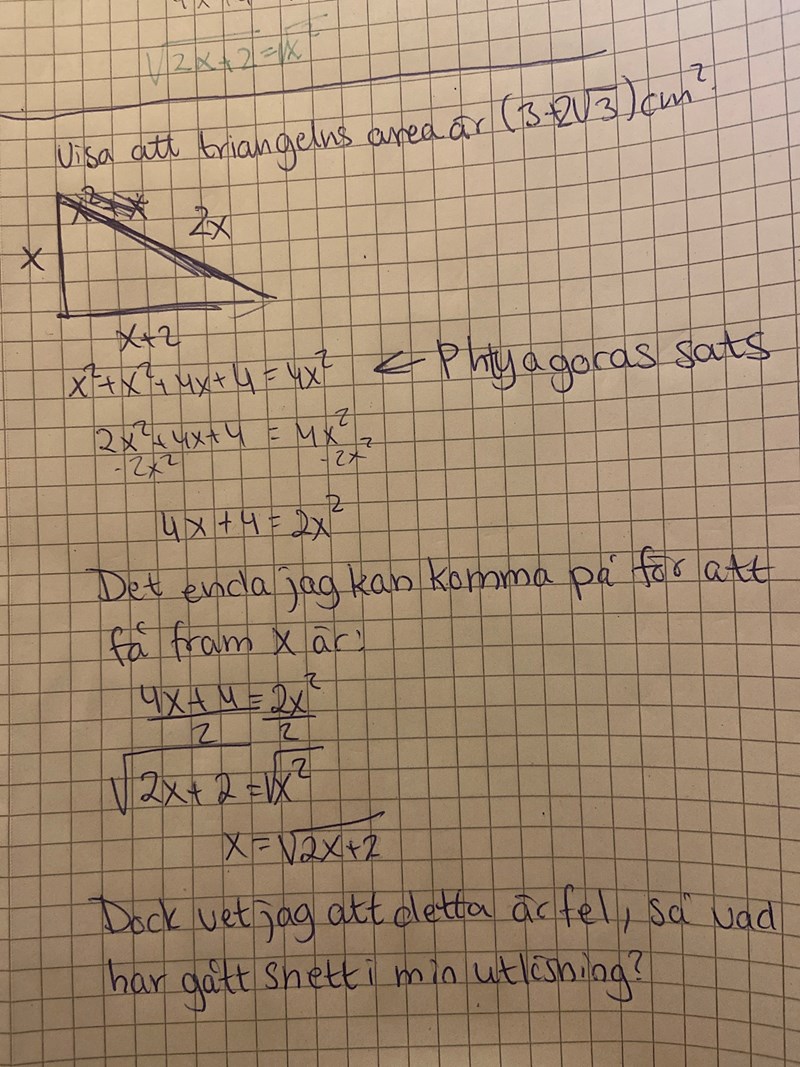 √2x+2 = √x²
Visa att triangelns area är (3+2√3)cm²
x
2x
x+2
x²+x²+4x+4=4x² ← Phtyagoras sats
2x²+4x+4 = 4x²
-2x² -2x²
4x+4=2x²
Det enda jag kan komma på för att
få fram x är:
4x+4 = 2x²
2 2
√2x+2 = √x²
x=√2x+2
Dock vet jag att detta är fel, så vad
har gått snett i min utlösning?